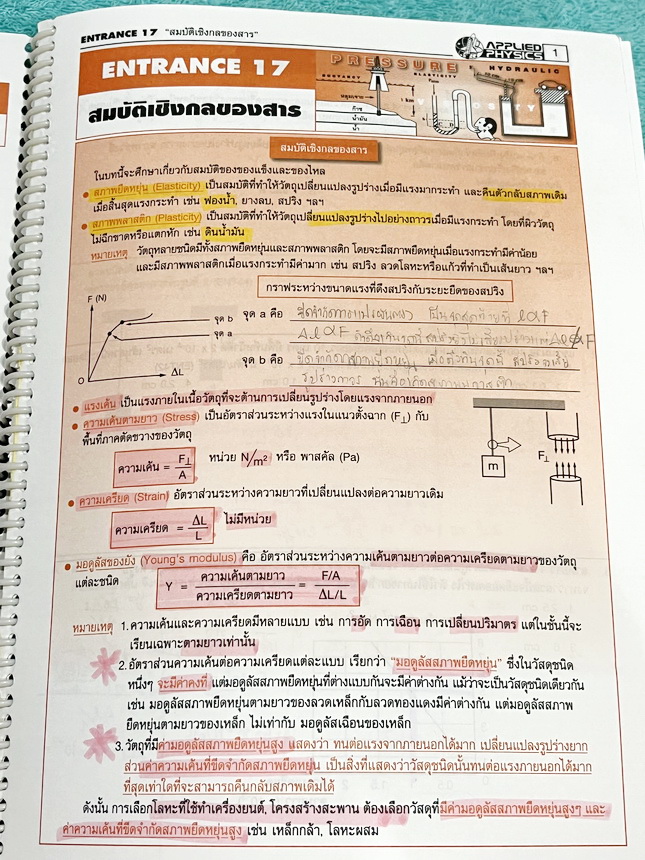 ENTRANCE 17 "สมบัติเชิงกลของสาร"
APPLIED PHYSICS 1
ENTRANCE 17
PRESSURE
BUOYANCY ELASTICITY HYDRAULIC
VISCOSITY
สมบัติเชิงกลของสาร
สมบัติเชิงกลของสาร
ในบทนี้จะศึกษาเกี่ยวกับสมบัติของของแข็งและของไหล
สภาพยืดหยุ่น (Elasticity) เป็นสมบัติที่ทำให้วัตถุเปลี่ยนแปลงรูปร่างเมื่อมีแรงมากระทำ และคืนตัวกลับสภาพเดิม
เมื่อสิ้นสุดแรงกระทำ เช่น ฟองน้ำ, ยางลบ, สปริง ฯลฯ
สภาพพลาสติก (Plasticity) เป็นสมบัติที่ทำให้วัตถุเปลี่ยนแปลงรูปร่างไปอย่างถาวรเมื่อมีแรงกระทำ โดยที่ผิววัตถุ
ไม่ฉีกขาดหรือแตกหัก เช่น ดินน้ำมัน
หมายเหตุ วัตถุหลายชนิดมีทั้งสภาพยืดหยุ่นและสภาพพลาสติก โดยจะมีสภาพยืดหยุ่นเมื่อแรงกระทำมีค่าน้อย
และมีสภาพพลาสติกเมื่อแรงกระทำมีค่ามาก เช่น สปริง ลวดโลหะหรือแก้วที่ทำเป็นเส้นยาว ฯลฯ
กราฟระหว่างขนาดแรงที่ดึงสปริงกับระยะยืดของสปริง
F (N)
จุด b
จุด a
O
ΔL
จุด a คือ
จุด b คือ
แรงเค้น เป็นแรงภายในเนื้อวัตถุที่จะต้านการเปลี่ยนรูปร่างโดยแรงจากภายนอก
ความเค้นตามยาว (Stress) เป็นอัตราส่วนระหว่างแรงในแนวตั้งฉาก (F⊥) กับ
พื้นที่ภาคตัดขวางของวัตถุ
ความเค้น = F⊥/A หน่วย N/m² หรือ พาสคัล (Pa)
m F⊥
ความเครียด (Strain) อัตราส่วนระหว่างความยาวที่เปลี่ยนแปลงต่อความยาวเดิม
ความเครียด = ΔL/L ไม่มีหน่วย
มอดูลัสของยัง (Young's modulus) คือ อัตราส่วนระหว่างความเค้นตามยาวต่อความเครียดตามยาวของวัตถุ
แต่ละชนิด
Y = ความเค้นตามยาว/ความเครียดตามยาว = F/A / ΔL/L
หมายเหตุ 1. ความเค้นและความเครียดมีหลายแบบ เช่น การอัด การเฉือน การเปลี่ยนปริมาตร แต่ในชั้นนี้จะ
เรียนเฉพาะตามยาวเท่านั้น
2. อัตราส่วนความเค้นต่อความเครียดแต่ละแบบ เรียกว่า "มอดูลัสสภาพยืดหยุ่น" ซึ่งในวัสดุชนิด
หนึ่งๆ จะมีค่าคงที่ แต่มอดูลัสสภาพยืดหยุ่นที่ต่างแบบกันจะมีค่าต่างกัน แม้ว่าจะเป็นวัสดุชนิดเดียวกัน
เช่น มอดูลัสสภาพยืดหยุ่นตามยาวของลวดเหล็กกับลวดทองแดงมีค่าต่างกัน แต่มอดูลัสสภาพ
ยืดหยุ่นตามยาวของเหล็ก ไม่เท่ากับ มอดูลัสเฉือนของเหล็ก
3. วัตถุที่มีค่ามอดูลัสสภาพยืดหยุ่นสูง แสดงว่า ทนต่อแรงจากภายนอกได้มาก เปลี่ยนแปลงรูปร่างยาก
ส่วนค่าความเค้นที่ขีดจำกัดสภาพยืดหยุ่น เป็นสิ่งที่แสดงว่าวัสดุชนิดนั้นทนต่อแรงภายนอกได้มาก
ที่สุดเท่าใดที่จะสามารถคืนกลับสภาพเดิมได้
ดังนั้น การเลือกโลหะที่ใช้ทำเครื่องยนต์, โครงสร้างสะพาน ต้องเลือกวัสดุที่มีค่ามอดูลัสสภาพยืดหยุ่นสูงๆ และ
ค่าความเค้นที่ขีดจำกัดสภาพยืดหยุ่นสูง เช่น เหล็กกล้า, โลหะผสม